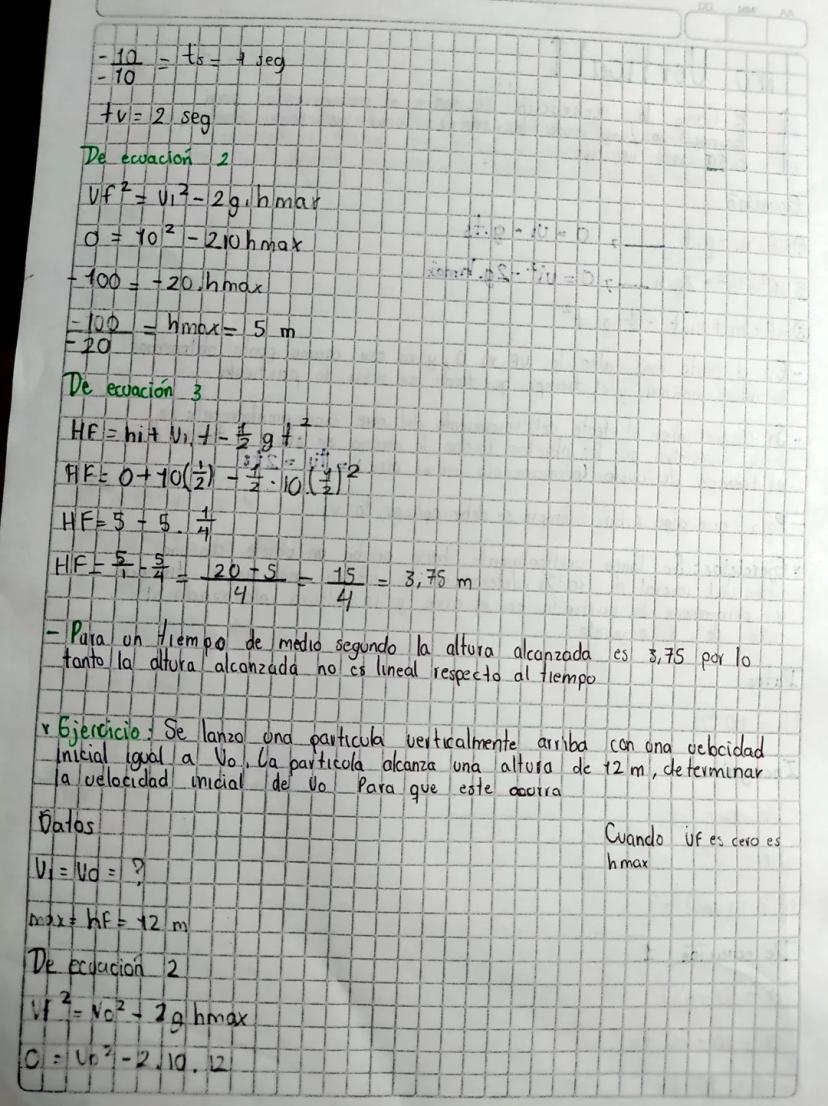 -10/-10 = ts = 1 seg
tv = 2 seg
De ecuación 2
Vf² = Vi² - 2g.hmax
0 = 10² - 210hmax
-100 = -20.hmax
-100/-20 = hmax = 5 m
De ecuación 3
HF = hi + Vi.t - 1/2 g t²
HF = 0 + 10(1/2) - 1/2 . 10 (1/2)²
HF = 5 - 5 . 1/4
HF = 5/1 - 5/4 = 20-5/4 = 15/4 = 3,75 m
- Para un tiempo de medio segundo la altura alcanzada es 3,75 por lo
tanto la altura alcanzada no es lineal respecto al tiempo
Ejercicio: Se lanzo una particula verticalmente arriba con una velocidad
inicial igual a Vo. La particula alcanza una altura de 12 m, determinar
la velocidad inicial de Vo Para que este ocurra
Datos
Cuando VF es cero es
hmax
Vi = Vo = ?
max = hF = 12 m
De ecuacion 2
Vf² = Vo² - 2g hmax
0 = Vo² - 2.10.12